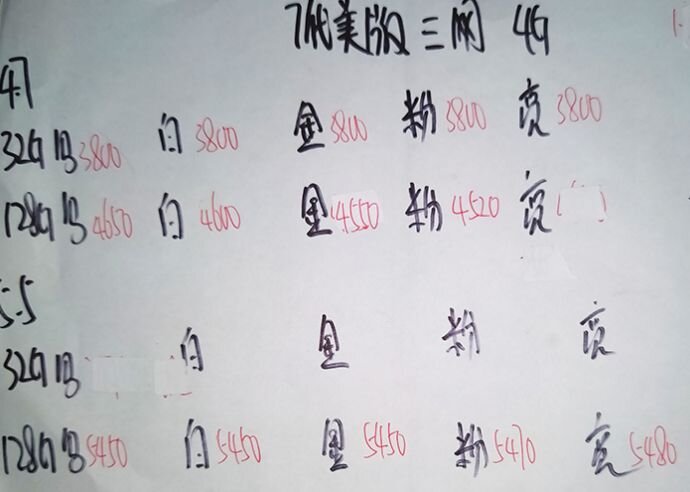 7代美版三网 4G
4.7
32G 黑3800 白3800 金3800 粉3800 亮3800
128G 黑4650 白4600 金4550 粉4520 亮
5.5
32G 黑 白 金 粉 亮
128G 黑5450 白5450 金5450 粉5470 亮5480